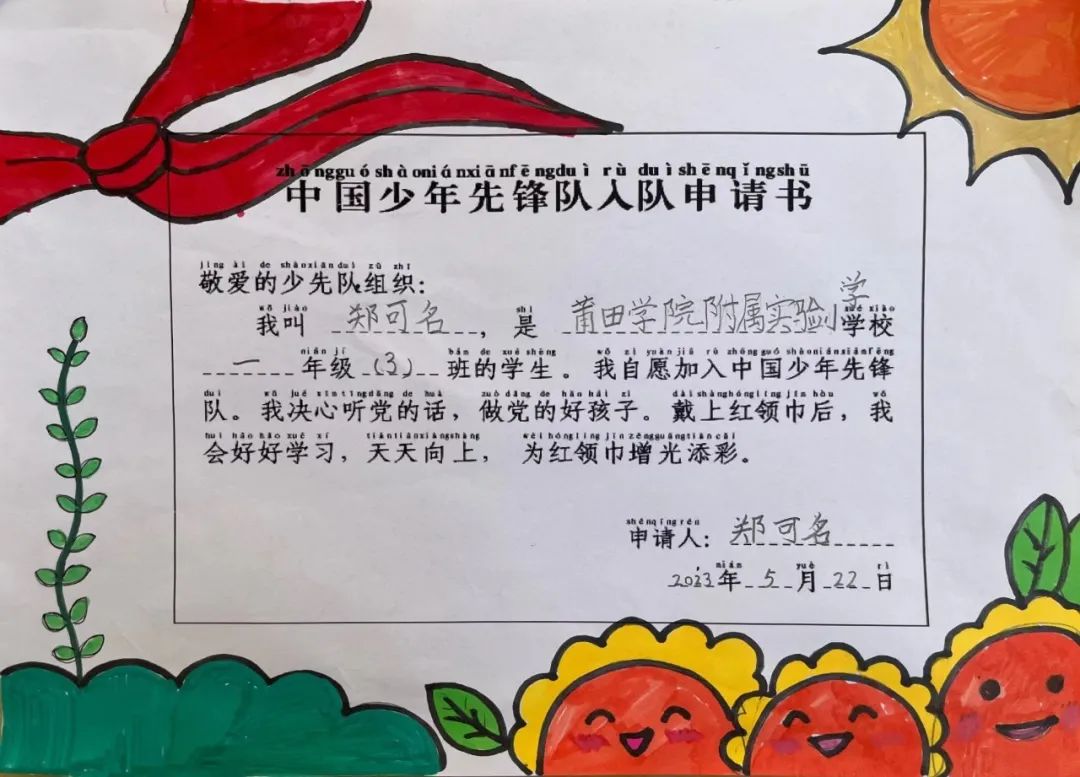 zhōngguóshàoniánxiānfēngduì rù duìshēnqǐngshū
中国少年先锋队入队申请书
jìng ài de shàoxiānduì zǔ zhī
敬爱的少先队组织：
wǒ jiào shì xué xiào
我叫 郑可名 ，是 莆田学院附属实验小学 学校
nián jí bān de xué shēng wǒ zì yuàn jiā rù zhōng guó shàoniánxiānfēng
一 年级 (3) 班的学生。我自愿加入中国少年先锋
duì wǒ jué xīntīngdǎng de huà zuò dǎng de hǎo hái zi dài shànghónglǐng jīn hòu wǒ
队。我决心听党的话，做党的好孩子。戴上红领巾后，我
huì hǎo hǎo xué xí tiāntiānxiàngshàng wèi hónglǐng jīn zēngguāngtiāncǎi
会好好学习，天天向上， 为红领巾增光添彩。
shēnqǐngrén
申请人：郑可名
nián yuè rì
2023年 5 月 22 日